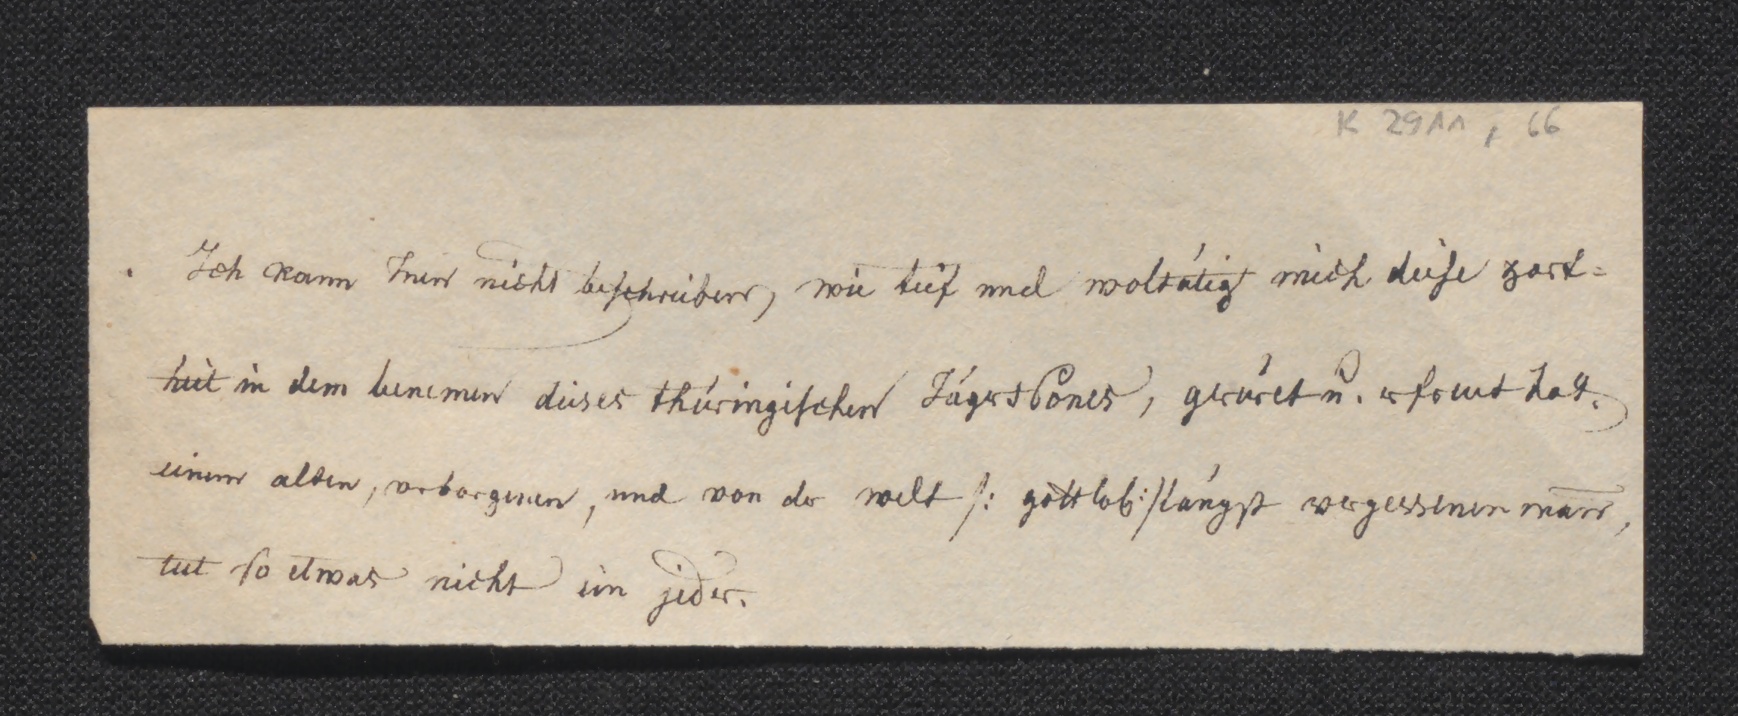 K 2911, 66
Ich kann Inen nicht beschreiben, wie tief und woltätig mich diese zart=
heit in dem benemen dieses thüringischen gerürt u. erfreut hat.
einem alten, verborgenen, und von der welt /: gottlob :/ längst vergessenen mann,
tut so etwas nicht ein jeder.